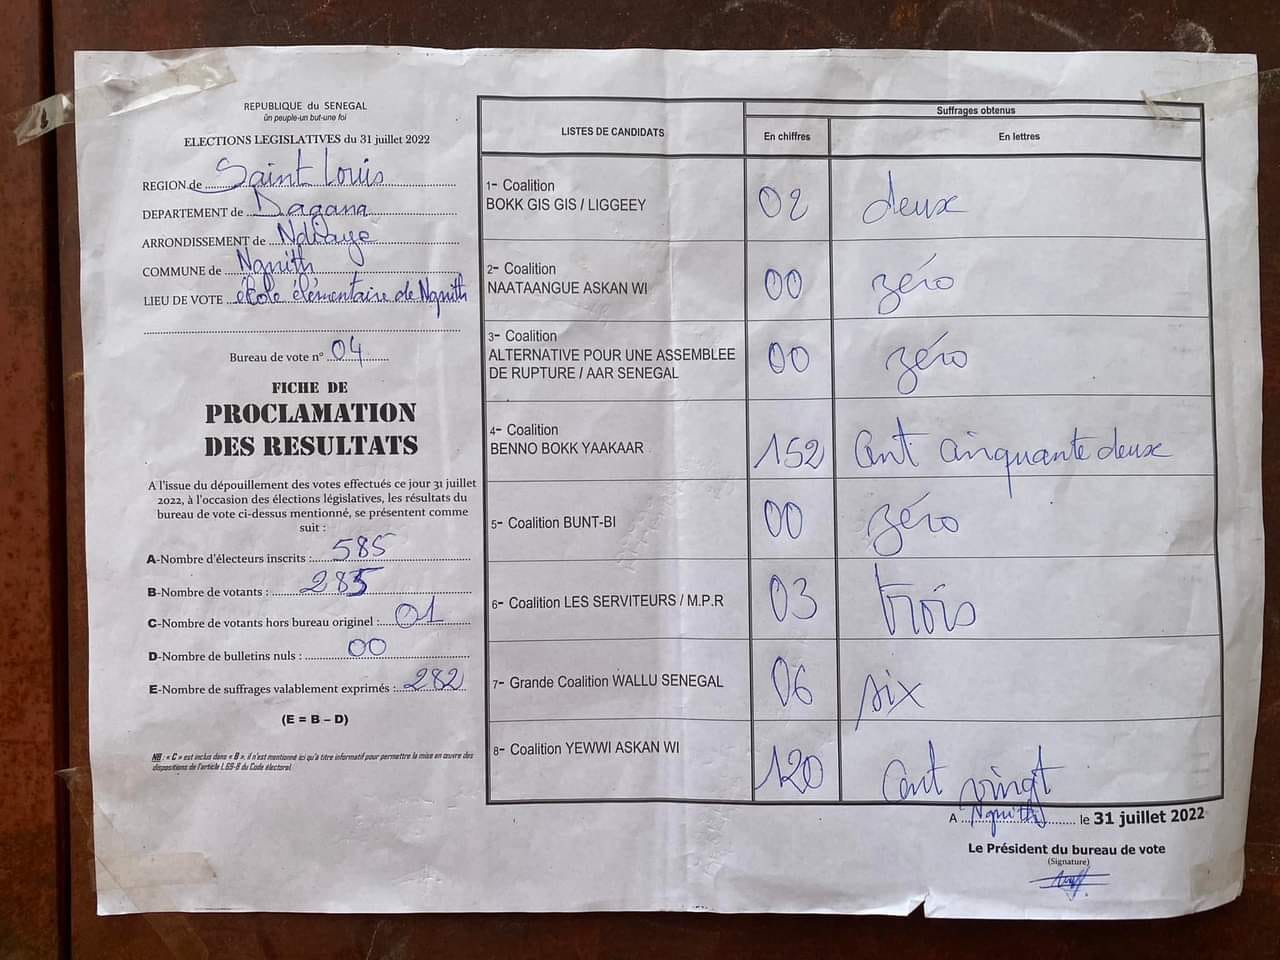 REPUBLIQUE du SENEGAL
ûn peuple-un but-une foi
ELECTIONS LEGISLATIVES du 31 juillet 2022
REGION de Saint Louis
DEPARTEMENT de Dagana
ARRONDISSEMENT de Ndiaye
COMMUNE de Ngnith
LIEU DE VOTE école élémentaire de Ngnith
Bureau de vote n° 04
FICHE DE
PROCLAMATION
DES RESULTATS
A l'issue du dépouillement des votes effectués ce jour 31 juillet
2022, à l'occasion des élections législatives, les résultats du
bureau de vote ci-dessus mentionné, se présentent comme
suit :
A-Nombre d'électeurs inscrits : 585
B-Nombre de votants : 285
C-Nombre de votants hors bureau originel : 01
D-Nombre de bulletins nuls : 00
E-Nombre de suffrages valablement exprimés : 282
(E = B – D)
NB : « C » est inclus dans « B », il n'est mentionné ici qu'à titre informatif pour permettre la mise en œuvre des
dispositions de l'article L.69-8 du Code électoral
LISTES DE CANDIDATS
Suffrages obtenus
En chiffres
En lettres
1- Coalition
BOKK GIS GIS / LIGGEEY
02
deux
2- Coalition
NAATAANGUE ASKAN WI
00
zéro
3- Coalition
ALTERNATIVE POUR UNE ASSEMBLEE
DE RUPTURE / AAR SENEGAL
00
zéro
4- Coalition
BENNO BOKK YAAKAAR
152
Cent cinquante deux
5- Coalition BUNT-BI
00
zéro
6- Coalition LES SERVITEURS / M.P.R
03
trois
7- Grande Coalition WALLU SENEGAL
06
six
8- Coalition YEWWI ASKAN WI
120
Cent vingt
A Ngnith le 31 juillet 2022
Le Président du bureau de vote
(Signature)